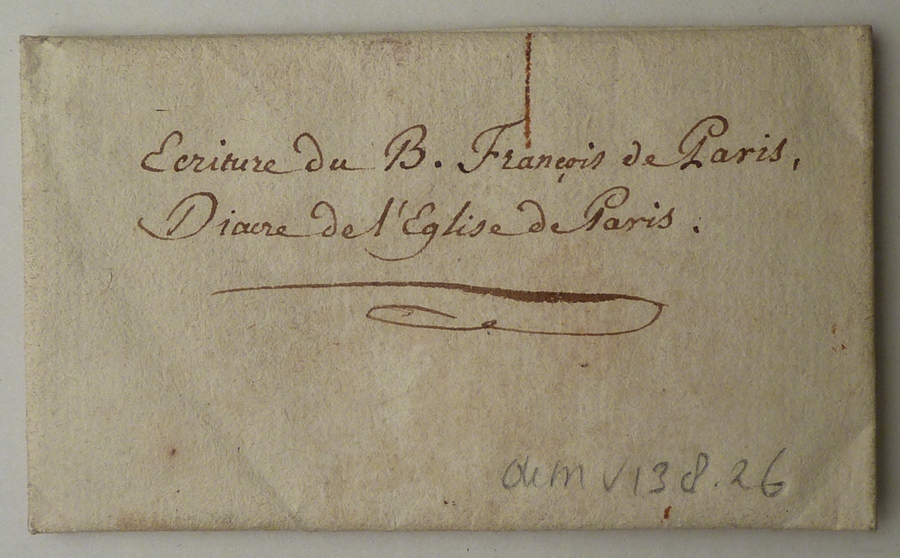 Ecriture du B. François de Paris,
Diacre de l'Eglise de Paris.
V 138.26